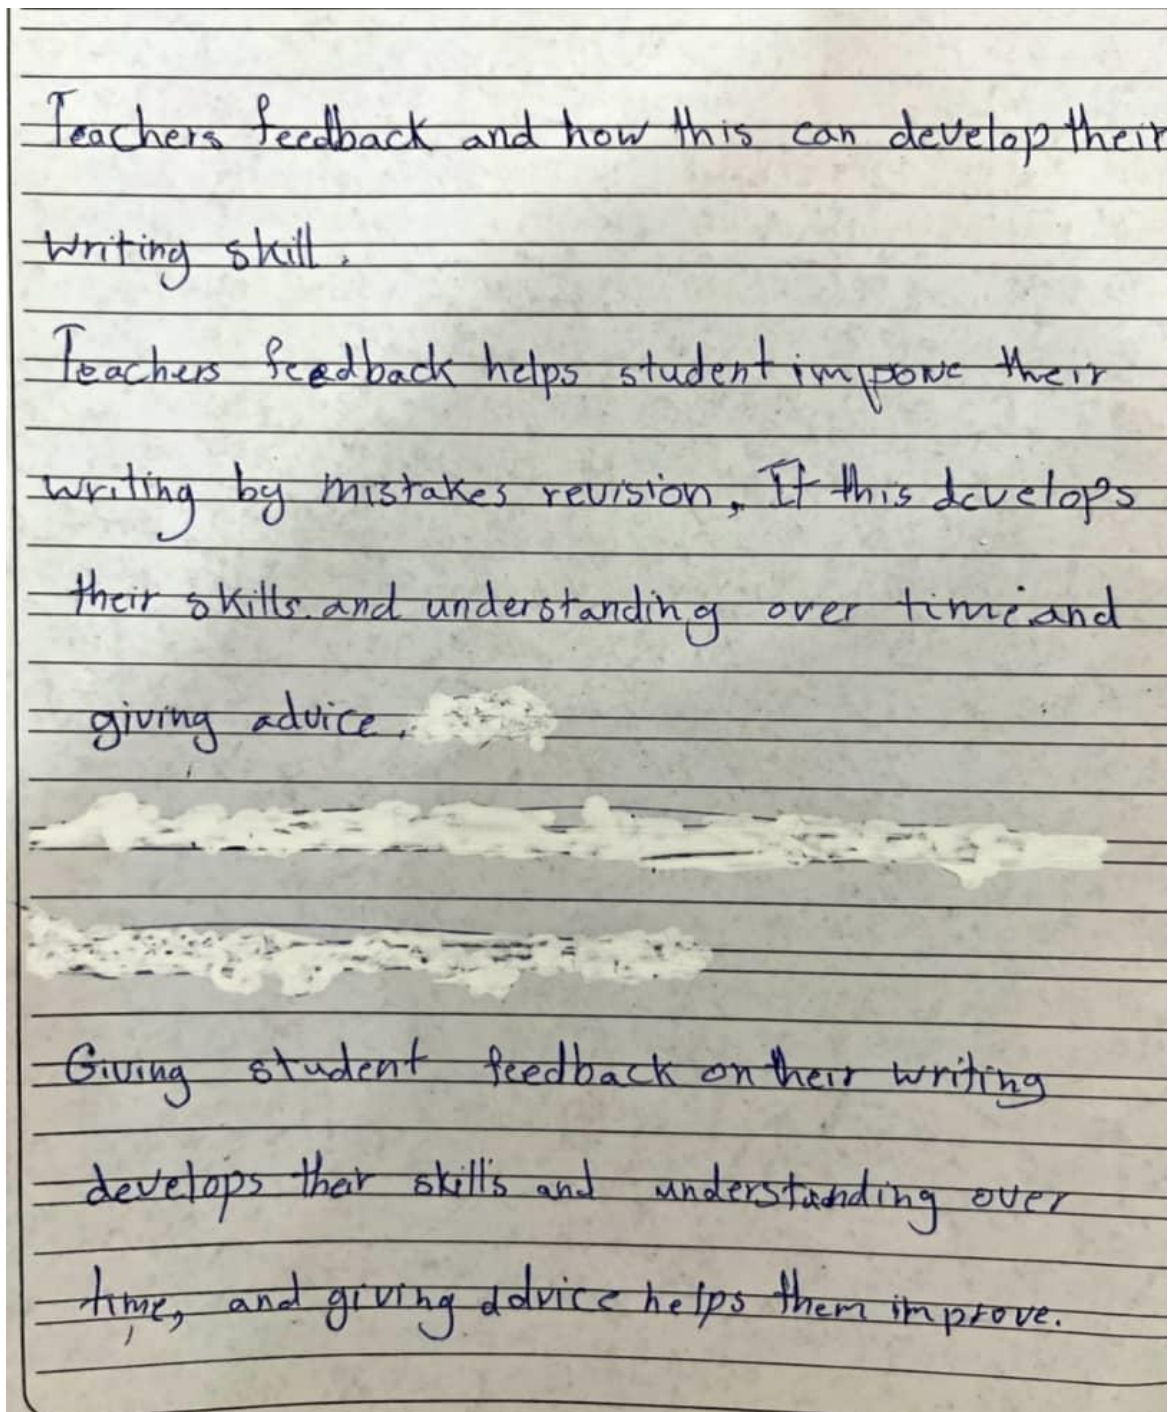 Teachers feedback and how this can develop their
writing skill.
Teachers feedback helps student impove their
writing by mistakes revision. If this develops
their skills and understanding over time and
giving advice.
Giving student feedback on their writing
develops their skills and understanding over
time, and giving advice helps them improve.